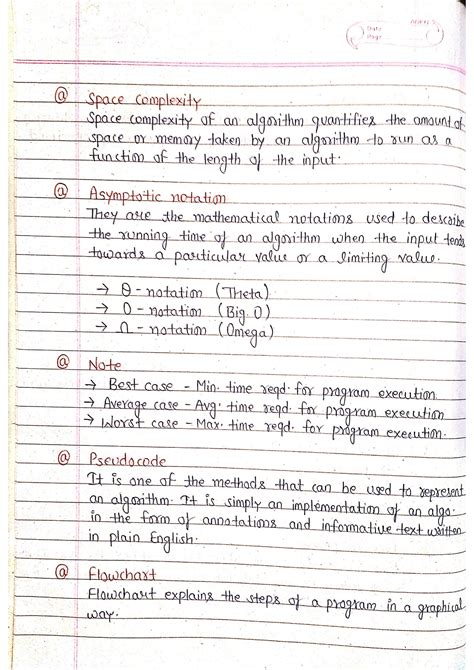 Date
Page
@ Space Complexity
Space complexity of an algorithm quantifies the amount of
space or memory taken by an algorithm to run as a
function of the length of the input.
@ Asymptotic notation
They are the mathematical notations used to describe
the running time of an algorithm when the input tends
towards a particular value or a limiting value.
→ Θ - notation (Theta)
→ O - notation (Big O)
→ Ω - notation (Omega)
@ Note
→ Best case - Min. time reqd. for program execution
→ Average case - Avg. time reqd. for program execution
→ Worst case - Max. time reqd. for program execution.
@ Pseudocode
It is one of the methods that can be used to represent
an algorithm. It is simply an implementation of an algo.
in the form of annotations and informative text written
in plain English.
@ Flowchart
Flowchart explains the steps of a program in a graphical
way.